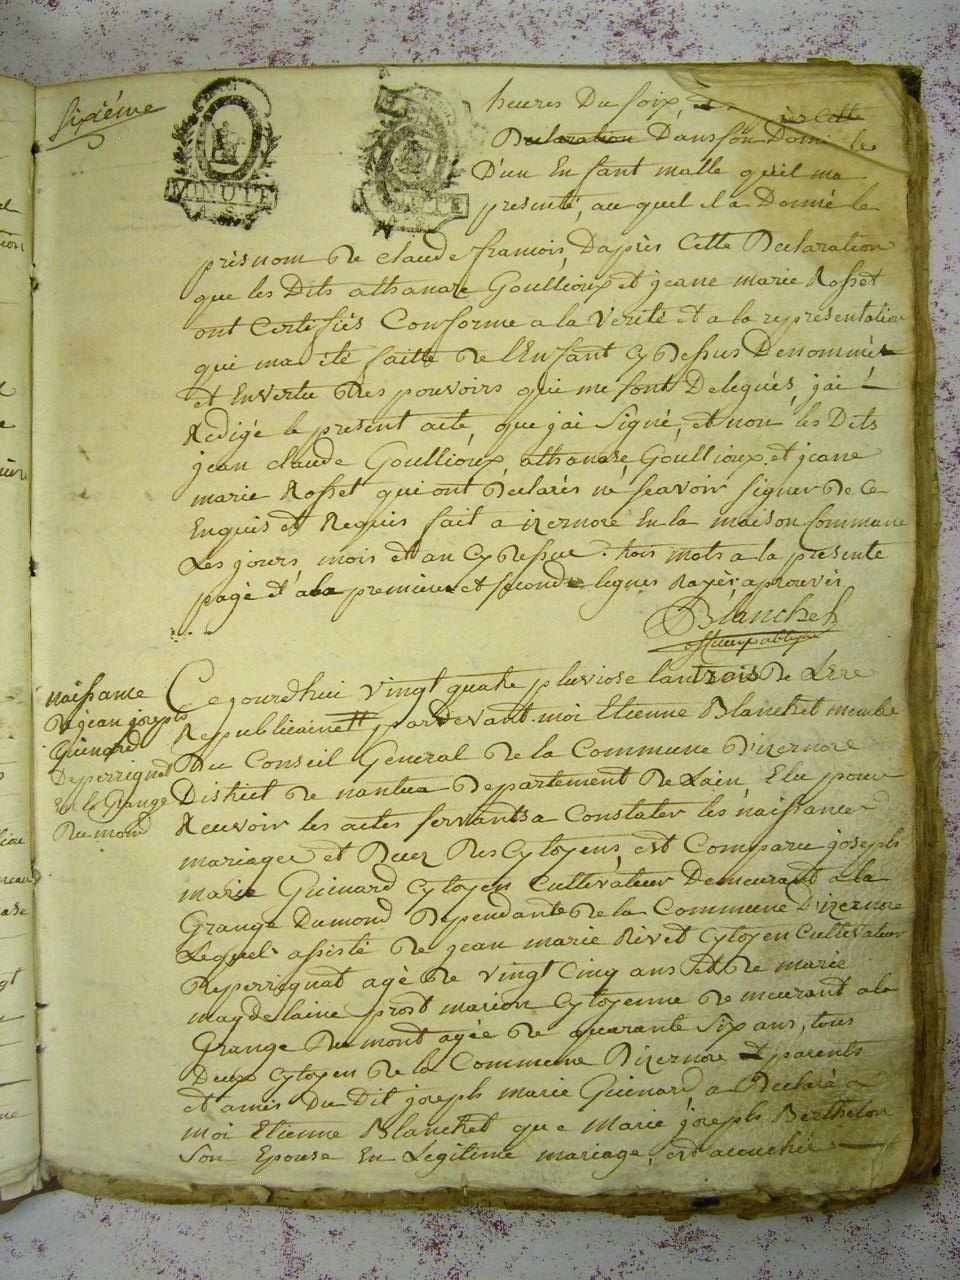 Sixiéme
MINUTE
heures Du soir,
Declaration Dans son Domi le
D'un Enfant malle qu'il ma
presenté, au quel il a Donné le
présnom De claude françois, Daprès Cette Declaration
que les Dits athanaze Goullioux et jeane marie Rosset
ont Certifiés Conforme a la Verité et a la representation
qui ma été faitte De l'Enfant Cy Dessus Denommés
et En vertu Des pouvoirs qui me sont Delegués, jai
Redigé le present acte, que jai Signé, et non les Dits
jean claude Goullioux, athanaze Goullioux, et jeane
marie Rosset qui ont Declarés ne seavoir signer De ce
Enquis et Requis fait a izernore En la maison Commune
Les jours mois et an Cy Dessus. trois mots a la presente
page et a la premiere et seconde lignes Rayés aprouvés
Blanchet
officier publique
naissance
De jean joseph
Guinard
De perrignat
En la Grange
Du mond
Ce jourd'hui vingt quatre pluviose lan trois De L'Ere
Republicainne pardevant moi Etienne Blanchet membre
Du Conseil General De la Commune D'izernore
District De nantua Departement De Lain, Elu pour
Recevoir les actes servants a Constater les naissances
mariages et Deces Des Cytoyens, est Comparu joseph
marie Guinard Cytoyen Cultivateur Demeurant a la
Grange Dumond Dependante De la Commune D'izernore
Lequel assisté De jean marie Rivet Cytoyen Cultivateur
De perrignat agé De vingt Cinq ans et De marie
magdelaine prost marion Cytoyenne De meurant a la
Grange Du mont agée De quarante Six ans, tous
Deux Cytoyen De la Commune D'izernore et parents
et amis Du Dit joseph marie Guinard, a Declaré a
moi Etienne Blanchet que Marie joseph Berthelon
son Epouse En Légitime mariage, est acouchée